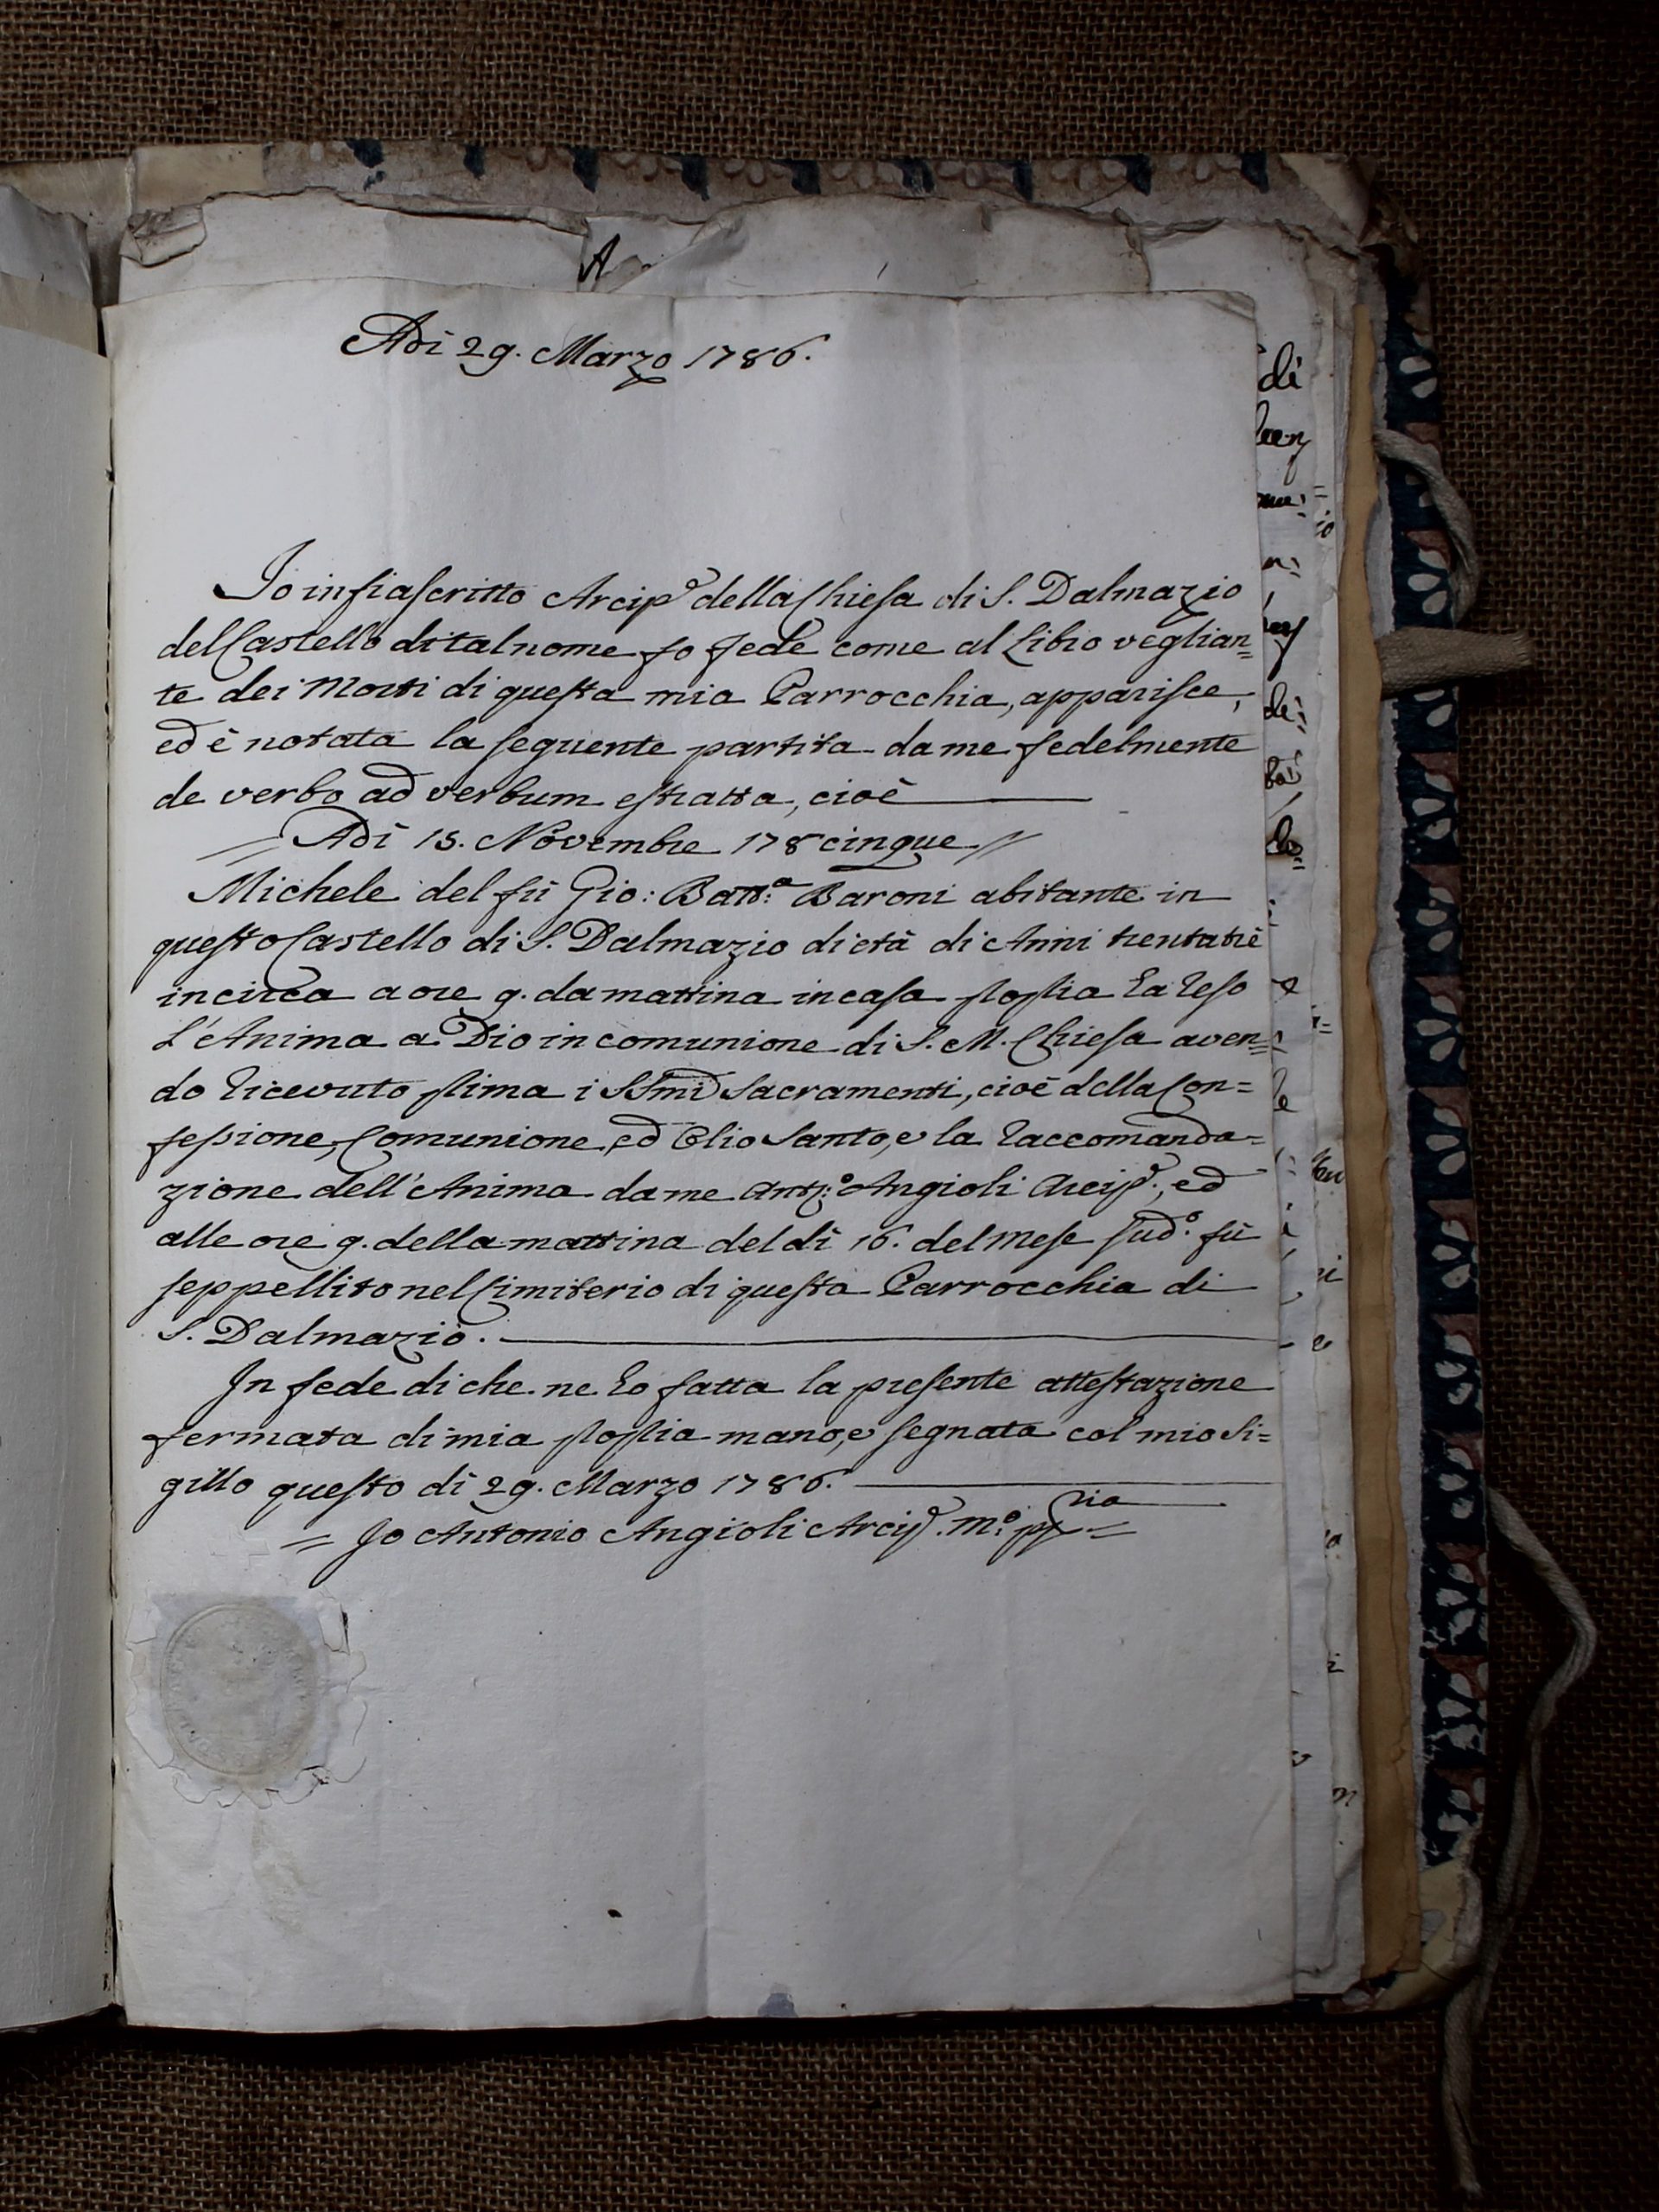 A
Adì 29. Marzo 1786.
Io infrascritto Arcip.e della Chiesa di S. Dalmazio
del Castello di tal nome fo fede come al Libro veglian=
te dei Morti di questa mia Parrocchia, apparisce,
ed è notata la seguente partita da me fedelmente
de verbo ad verbum estratta, cioè
= Adì 15. Novembre 178cinque =
Michele del fù Gio: Batt:a Baroni abitante in
questo Castello di S. Dalmazio di età di Anni trentatrè
in circa a ore 9. da mattina in casa propria ha reso
L'Anima a Dio in comunione di S. M. Chiesa aven=
do ricevuto prima i SSmi Sacramenti, cioè della Con=
fessione, Comunione, ed Olio Santo, e la raccomanda=
zione dell'Anima da me Ant:o Angioli Arcip.e, ed
alle ore 9. della mattina del dì 16. del mese sud.o fù
seppellito nel Cimiterio di questa Parrocchia di
S. Dalmazio.
In fede di che ne ho fatta la presente attestazione
fermata di mia propria mano, e segnata col mio Si=
gillo questo dì 29. Marzo 1786.
= Io Antonio Angioli Arcip.e M:o ppria =